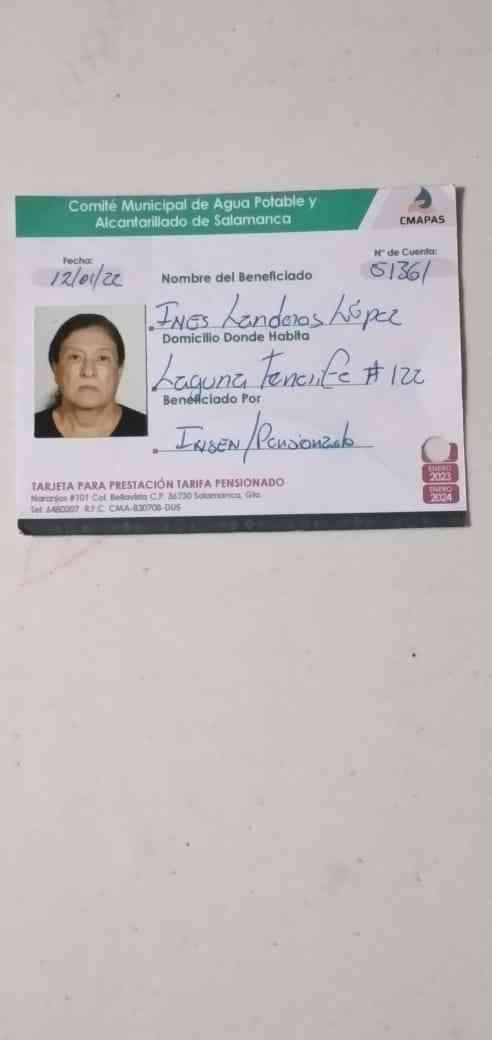 Comité Municipal de Agua Potable y
Alcantarillado de Salamanca
CMAPAS
Fecha:
12/01/22
N° de Cuenta:
51361
Nombre del Beneficiado
INES Landeros López
Domicilio Donde Habita
Laguna Tenerife # 122
Beneficiado Por
INSEN/Pensionado
ENERO
2023
ENERO
2024
TARJETA PARA PRESTACIÓN TARIFA PENSIONADO
Naranjos #101 Col. Bellavista C.P. 36730 Salamanca, Gto.
Tel. 6480207 R.F.C. CMA-830708-DU5